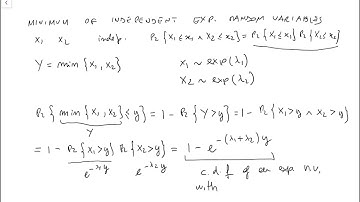 MINIMUM OF INDEPENDENT EXP. RANDOM VARIABLES
X₁ X₂ indep. Pr{X₁≤x₁ ∧ X₂≤x₂} = Pr{X₁≤x₁} Pr{X₂≤x₂}
Y = min {X₁, X₂} X₁ ~ exp(λ₁)
X₂ ~ exp(λ₂)
Pr{ min{X₁, X₂} ≤ y } = 1 - Pr{Y>y} = 1 - Pr{X₁>y ∧ X₂>y}
Y
= 1 - Pr{X₁>y} Pr{X₂>y} = 1 - e^{-(λ₁+λ₂)y}
e^{-λ₁y} e^{-λ₂y} c.d.f. of an exp r.v.
with